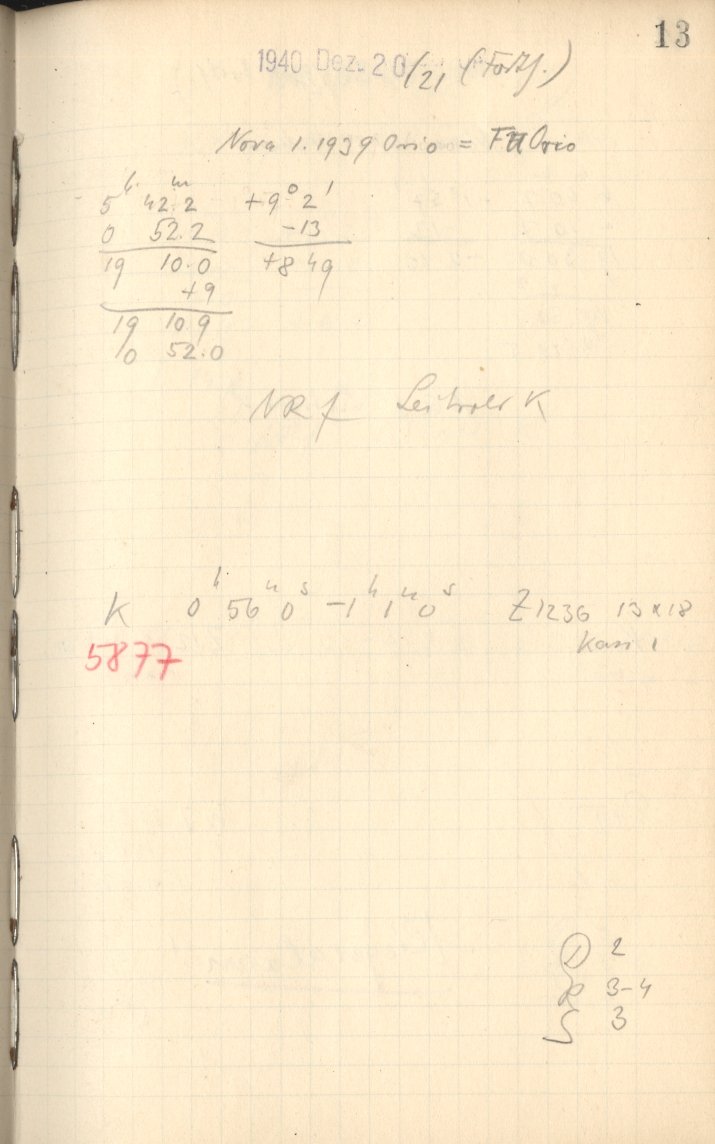 13
1940 Dez. 20/21 (Forts.)
Nova 1.1939 Orio = FU Orio
5h 42.2m +9° 2'
0 52.2 -13
19 10.0 +8 49
+9
19 10 9
0 52.0
NR f Leitrohr K
K 0h 56m 0s -1h 1m 0s Z1236 13x18
5877 Kass 1
D 2
R 3-4
S 3